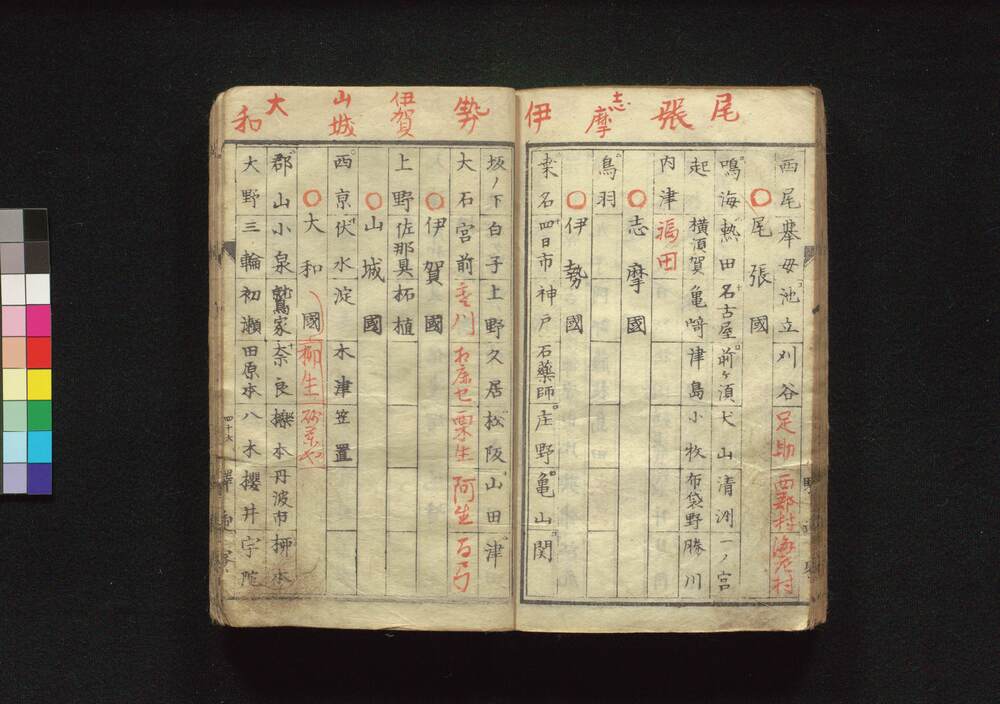 尾張
志摩
伊
勢
伊賀
山城
大和
西尾挙母池立刈谷足助西郡村
尾張國
鳴海熱田名古屋前ヶ須犬山清洲一ノ宮
起横須賀亀崎津島小牧布袋野勝川
内津福田
志摩國
鳥羽
伊勢國
桒名四日市神戸石藥師庄野亀山関
坂ノ下白子上野久居松阪山田津
大石宮前栗生阿生
伊賀國
上野佐那具柘植
山城國
西京伏水淀木津笠置
大和國柳生
郡山小泉鷲家奈良櫟本丹波市柳本
大野三輪初瀬田原本八木櫻井宇陀
四十六